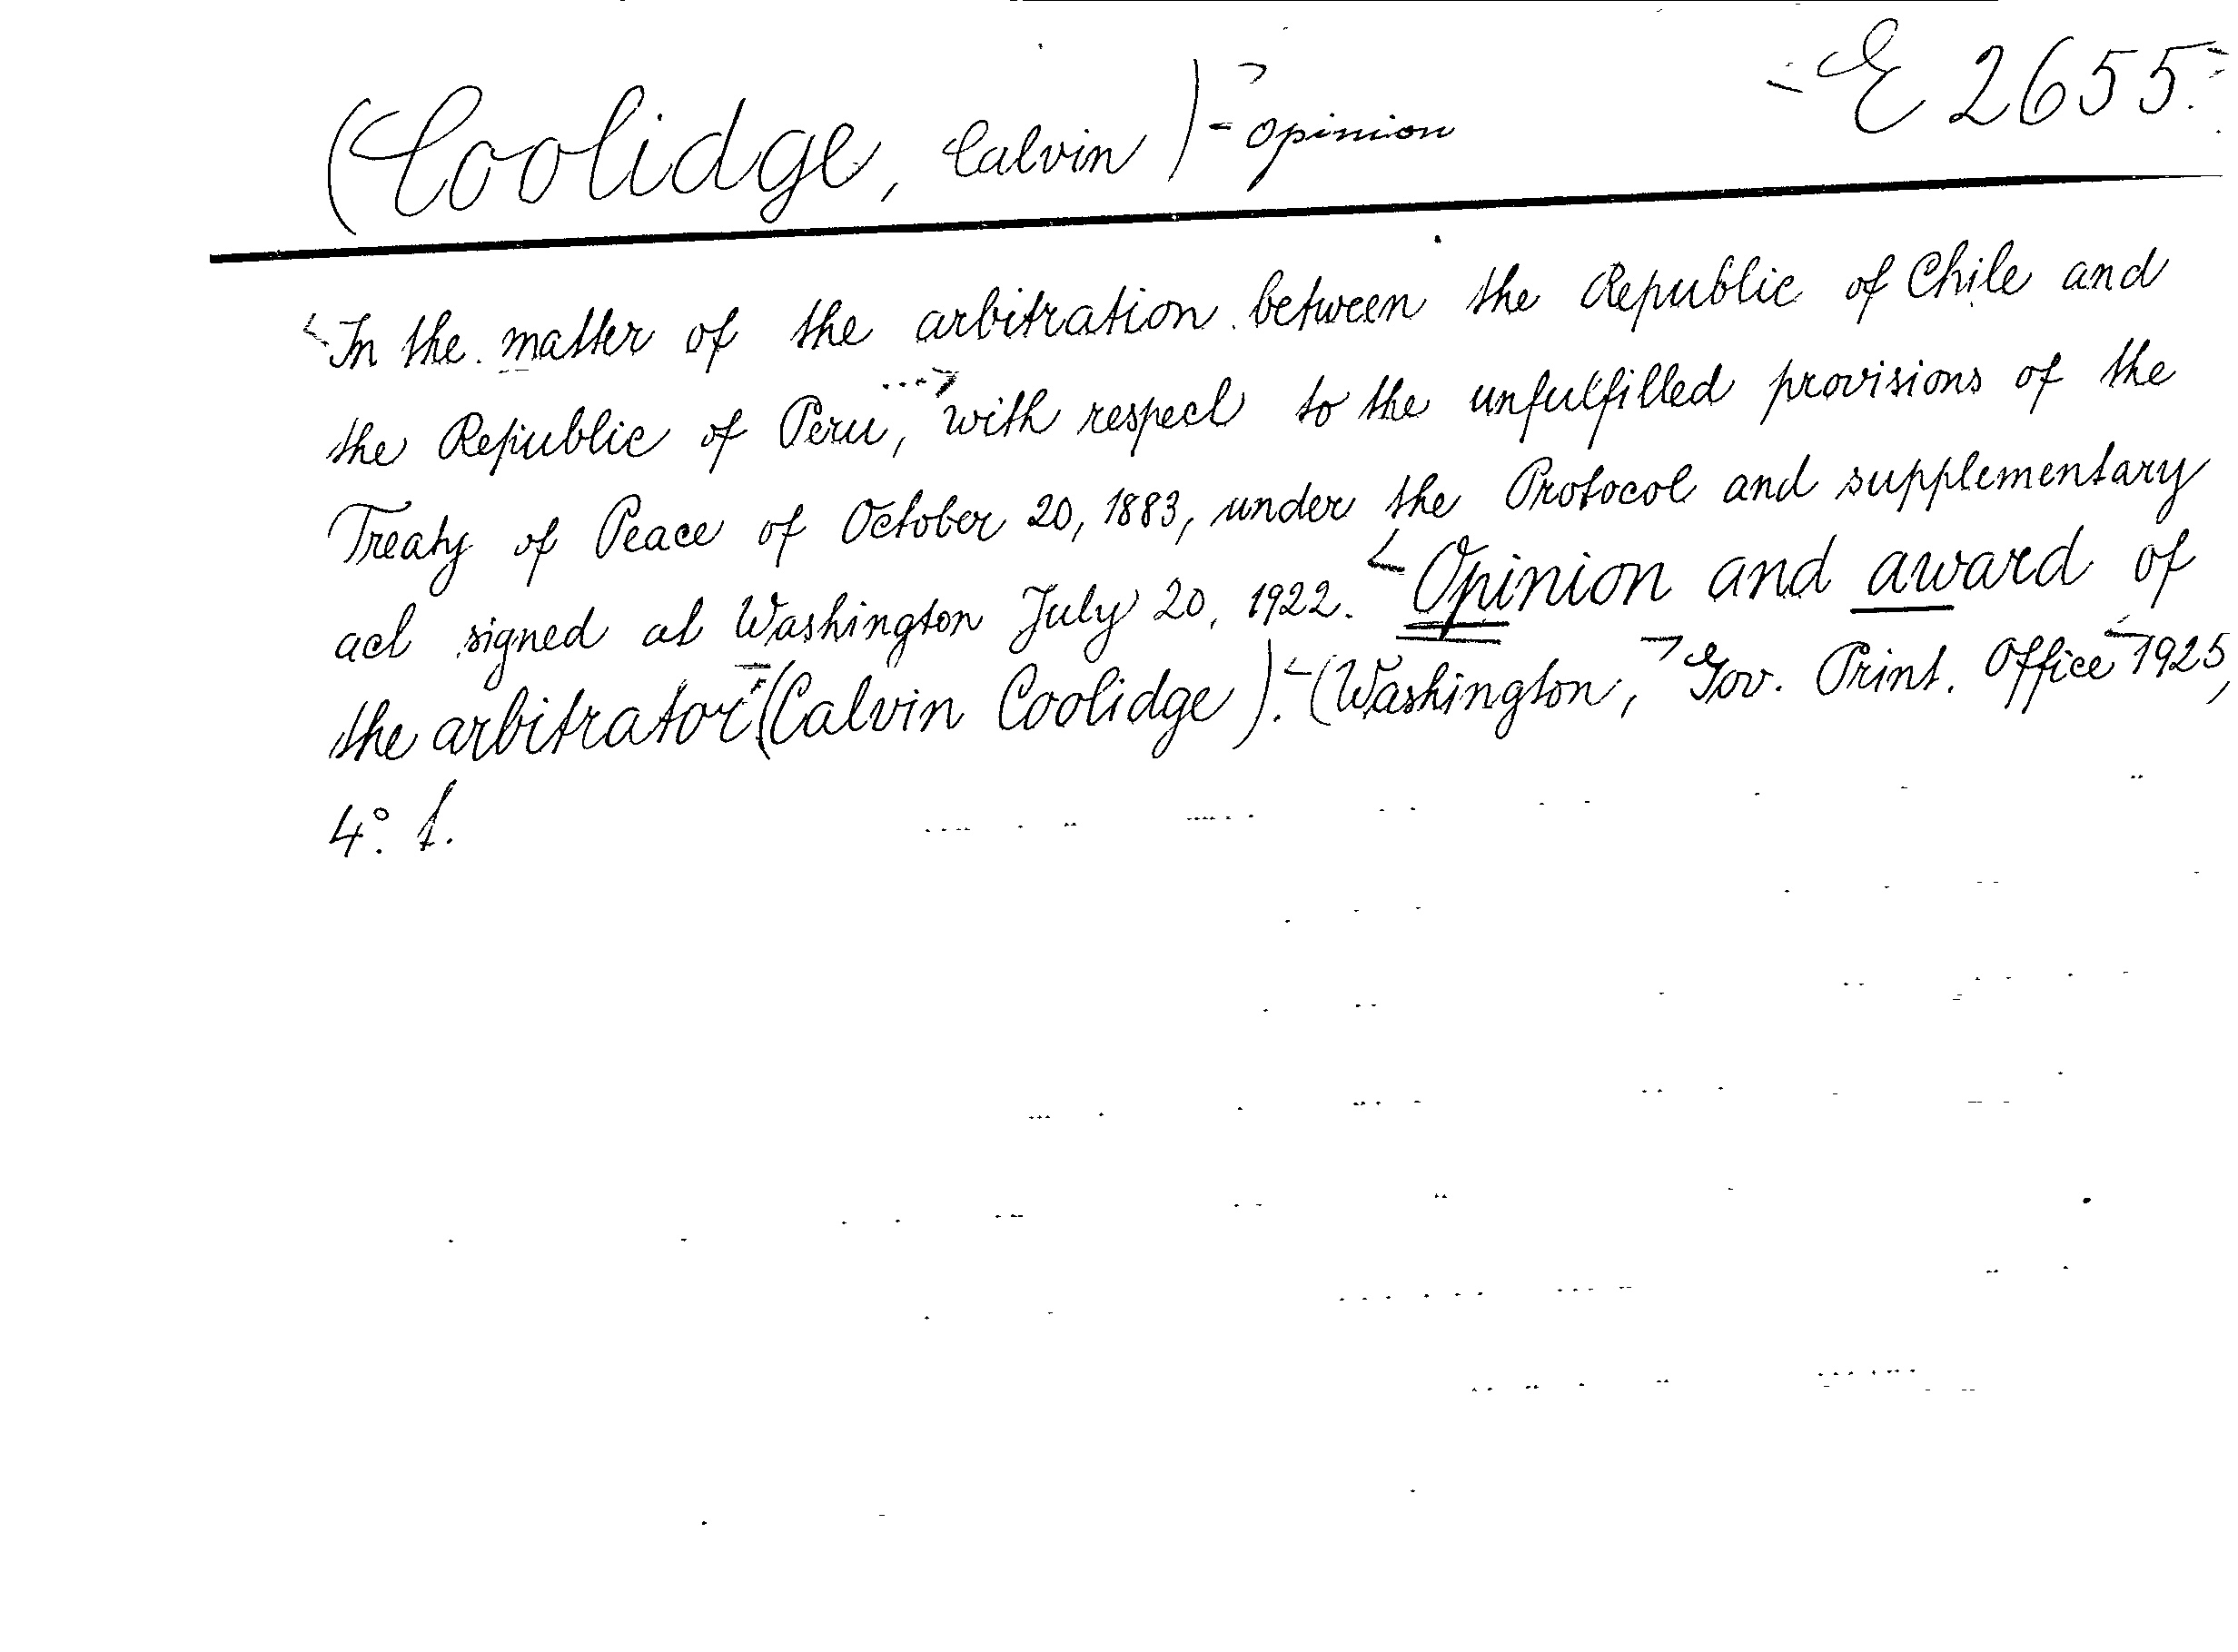 (Coolidge, Calvin) - Opinion E 2655.
In the matter of the arbitration between the Republic of Chile and
the Republic of Peru, with respect to the unfulfilled provisions of the
Treaty of Peace of October 20, 1883, under the Protocol and supplementary
act signed at Washington July 20, 1922. Opinion and award of
the arbitrator (Calvin Coolidge). (Washington, Gov. Print. Office 1925,
4°. f.